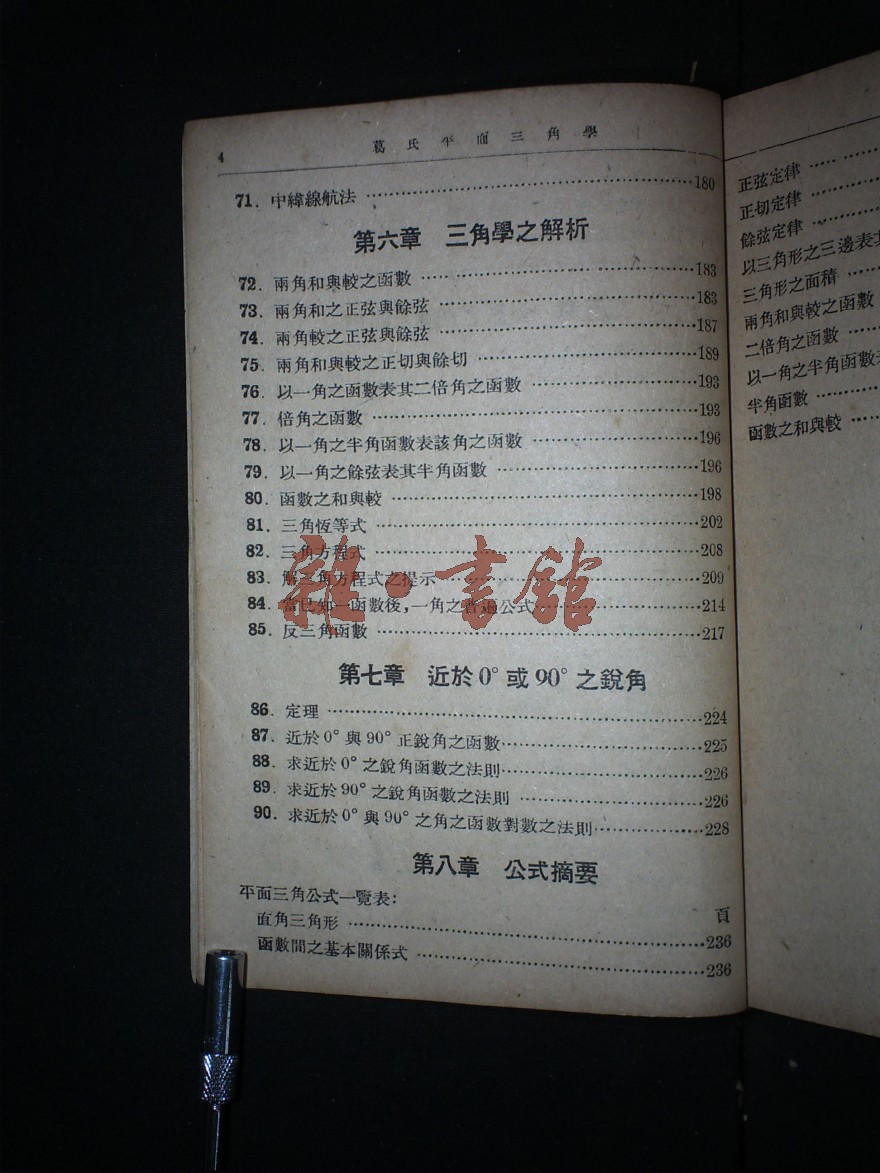 4 葛氏平面三角學
71. 中緯線航法 180
第六章 三角學之解析
72. 兩角和與較之函數 183
73. 兩角和之正弦與餘弦 183
74. 兩角較之正弦與餘弦 187
75. 兩角和與較之正切與餘切 189
76. 以一角之函數表其二倍角之函數 193
77. 倍角之函數 193
78. 以一角之半角函數表該角之函數 196
79. 以一角之餘弦表其半角函數 196
80. 函數之和與較 198
81. 三角恆等式 202
82. 三角方程式 208
83. 解三角方程式之提示 209
84. 當已知一函數後,一角之普遍公式 214
85. 反三角函數 217
第七章 近於0°或90°之銳角
86. 定理 224
87. 近於0°與90°正銳角之函數 225
88. 求近於0°之銳角函數之法則 226
89. 求近於90°之銳角函數之法則 226
90. 求近於0°與90°之角之函數對數之法則 228
第八章 公式摘要
平面三角公式一覽表:
頁
直角三角形 236
函數間之基本關係式 236
正弦定律
正切定律
餘弦定律
以三角形之三邊表其
三角形之面積
兩角和與較之函數
二倍角之函數
以一角之半角函數表
半角函數
函數之和與較
雜·書館